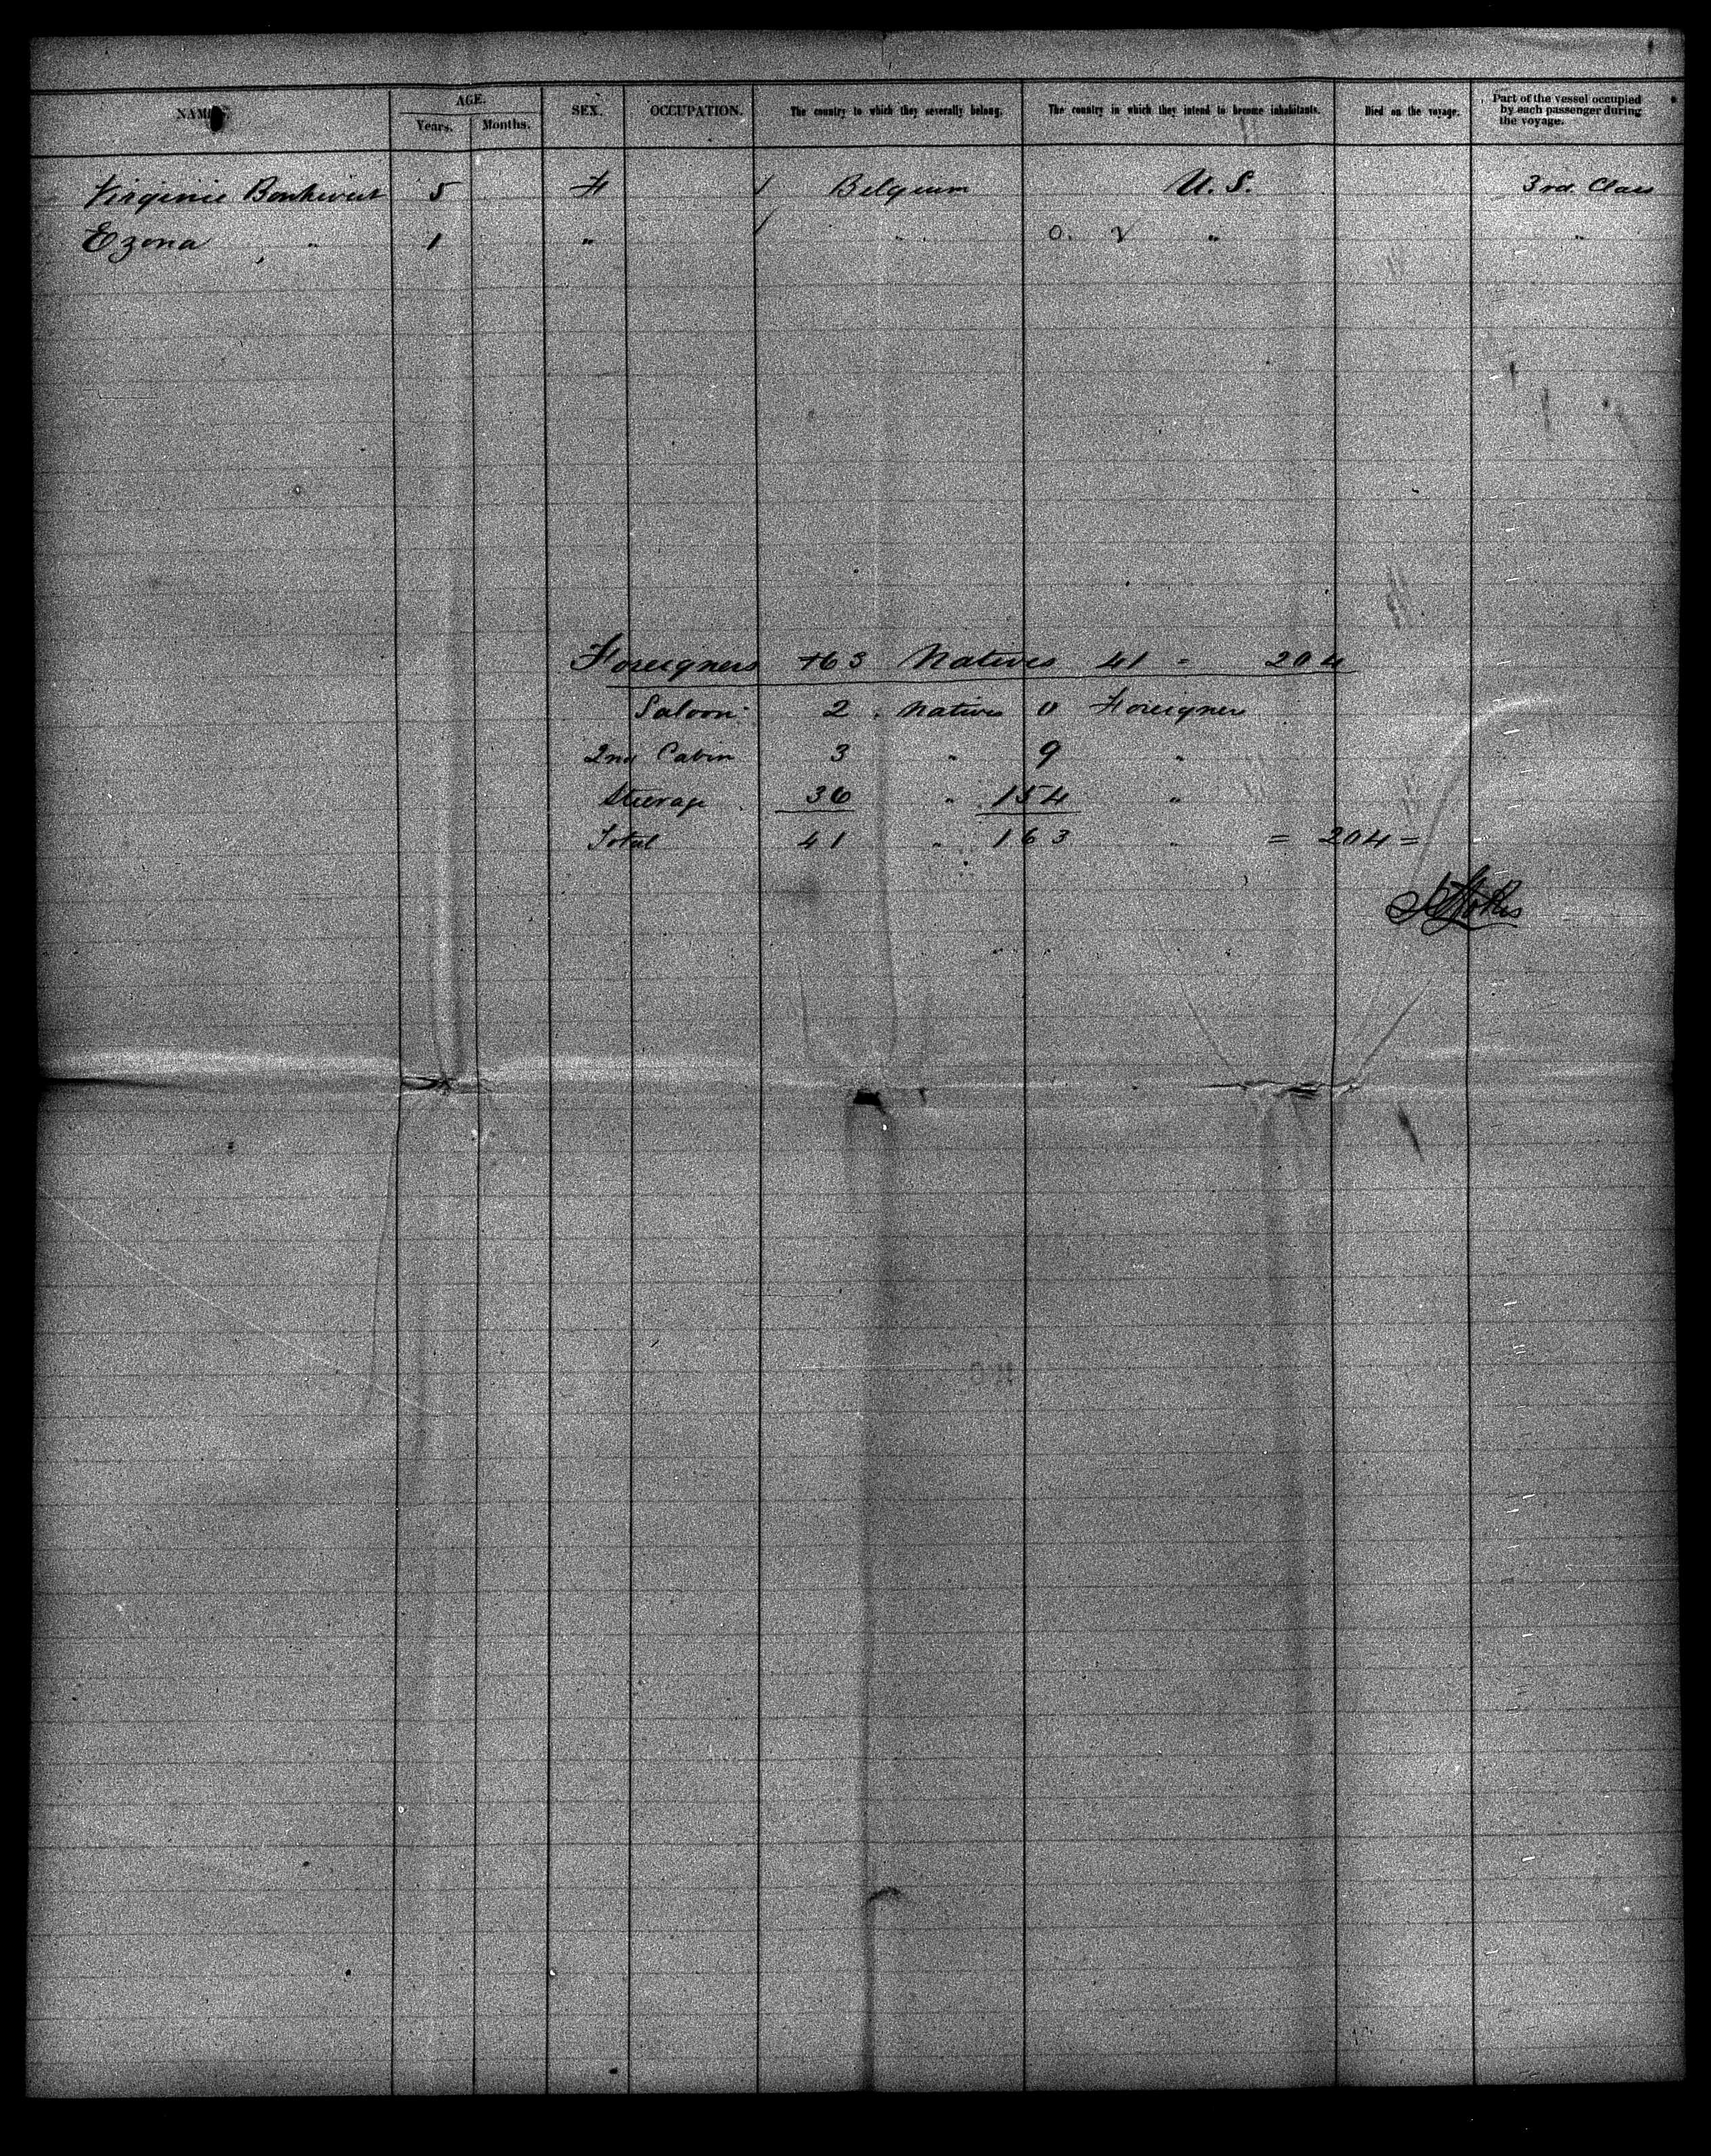 NAMES. AGE. SEX. OCCUPATION. The country to which they severally belong. The country in which they intend to become inhabitants. Died on the voyage. Part of the vessel occupied by each passenger during the voyage.
Years. Months.
Virginie 5 F / Belgium U. S. 3rd. Class
Ezona " 1 " / " " "
Foreigners 163 Natives 41 = 204
Saloon: 2 . Natives 0 Foreigners
2nd Cabin 3 " 9 "
Steerage 36 " 154 "
Total 41 " 163 " = 204 =